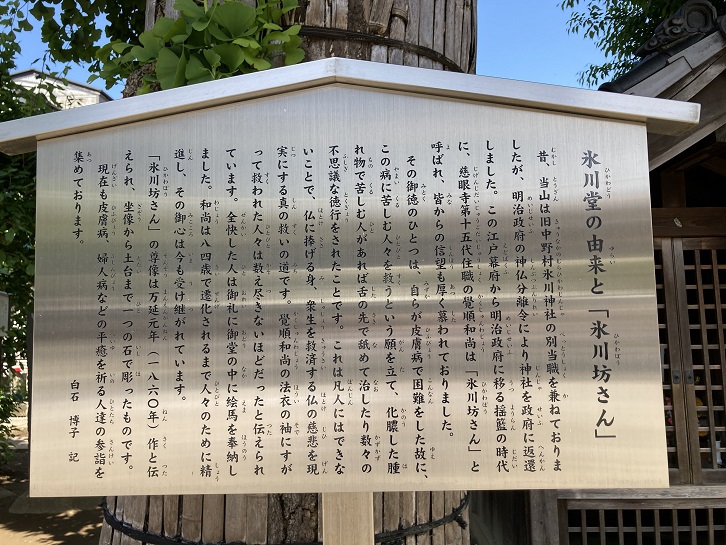 氷川堂の由来と「氷川坊さん」
昔、当山は旧中野村氷川神社の別当職を兼ねておりま
したが、明治政府の神仏分離令により神社を政府に返還
しました。この江戸幕府から明治政府に移る揺籃の時代
に、慈眼寺第十五代住職の覺順和尚は「氷川坊さん」と
呼ばれ、皆からの信望も厚く慕われておりました。
その御徳のひとつは、自らが皮膚病で困難をした故に、
この病に苦しむ人々を救うという願を立て、化膿した腫
れ物で苦しむ人があれば舌の先で舐めて治したり数々の
不思議な徳行をされたことです。これは凡人にはできな
いことで、仏に捧げる身、衆生を救済する仏の慈悲を現
実にする真の救いの道です。覺順和尚の法衣の袖にすが
って救われた人々は数え尽さないほどだったと伝えられ
ています。全快した人は御礼に御堂の中に絵馬を奉納し
ました。和尚は八四歳で遷化されるまで人々のために精
進し、その御心は今も受け継がれています。
「氷川坊さん」の尊像は万延元年（一八六〇年）作と伝
えられ、坐像から土台まで一つの石で彫ったものです。
現在も皮膚病、婦人病などの平癒を祈る人達の参詣を
集めております。
白石 博子 記